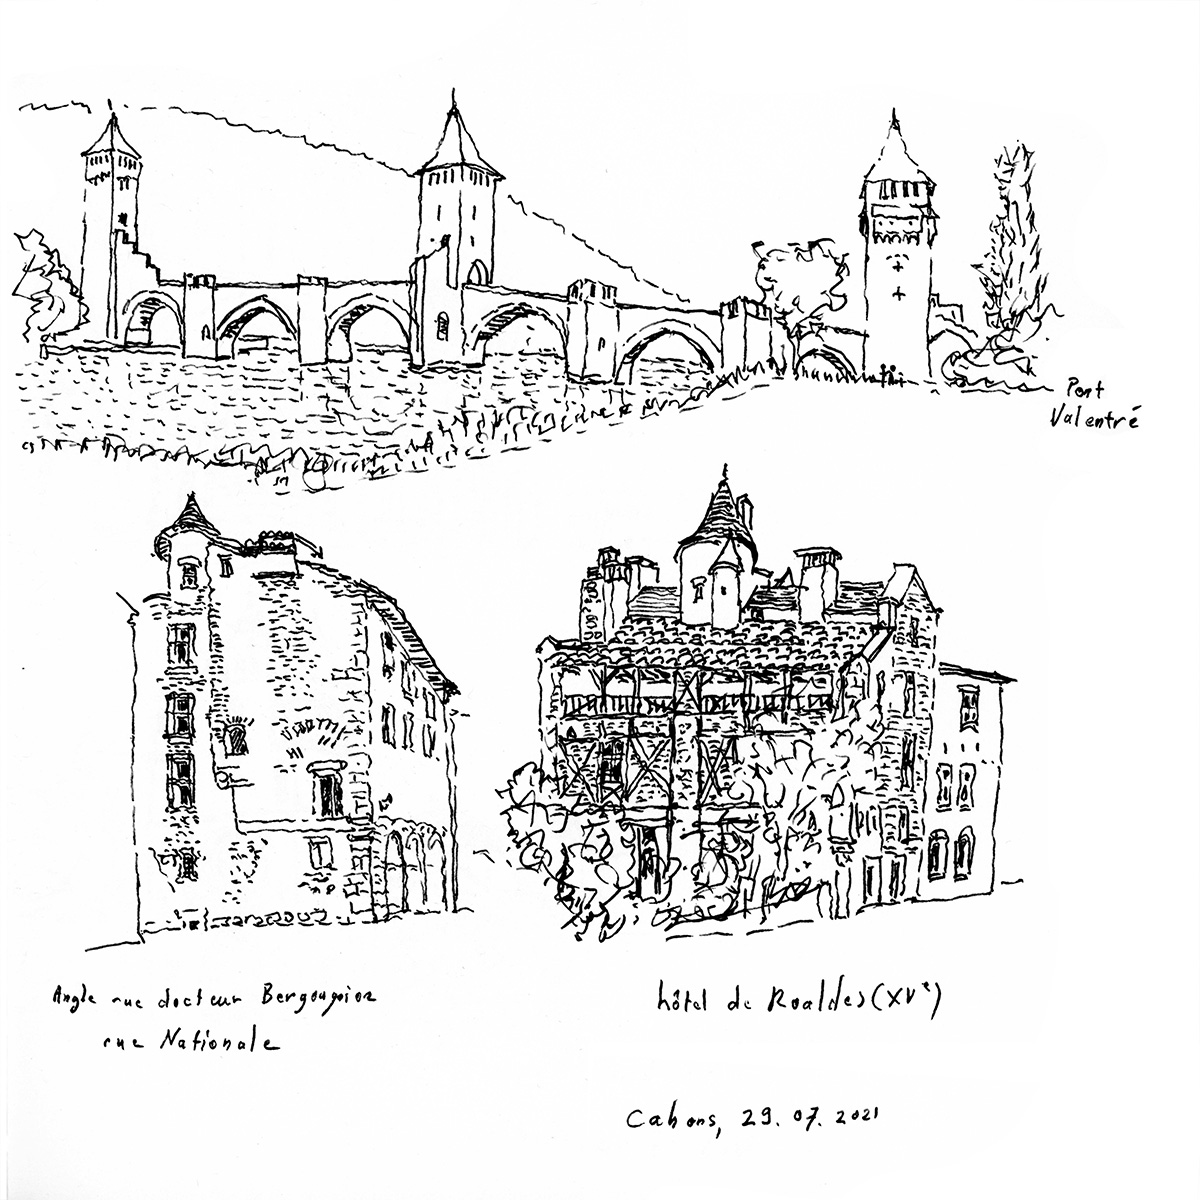 Pont
Valentré
Angle rue docteur Bergougnioz
rue Nationale
hôtel de Roaldès (XVᵉ)
Cahors, 29.07.2021